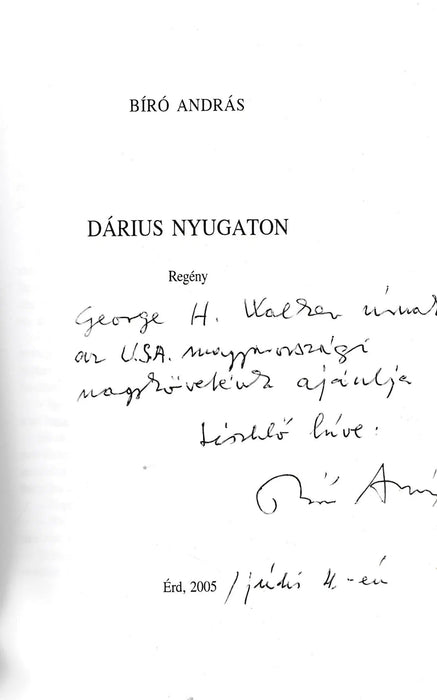 BÍRÓ ANDRÁS
DÁRIUS NYUGATON
Regény
George H. Walker úrnak
az USA. magyarországi
nagykövetének ajánlja
tisztelő híve:
Bíró András
Érd, 2005 / július 4.-én